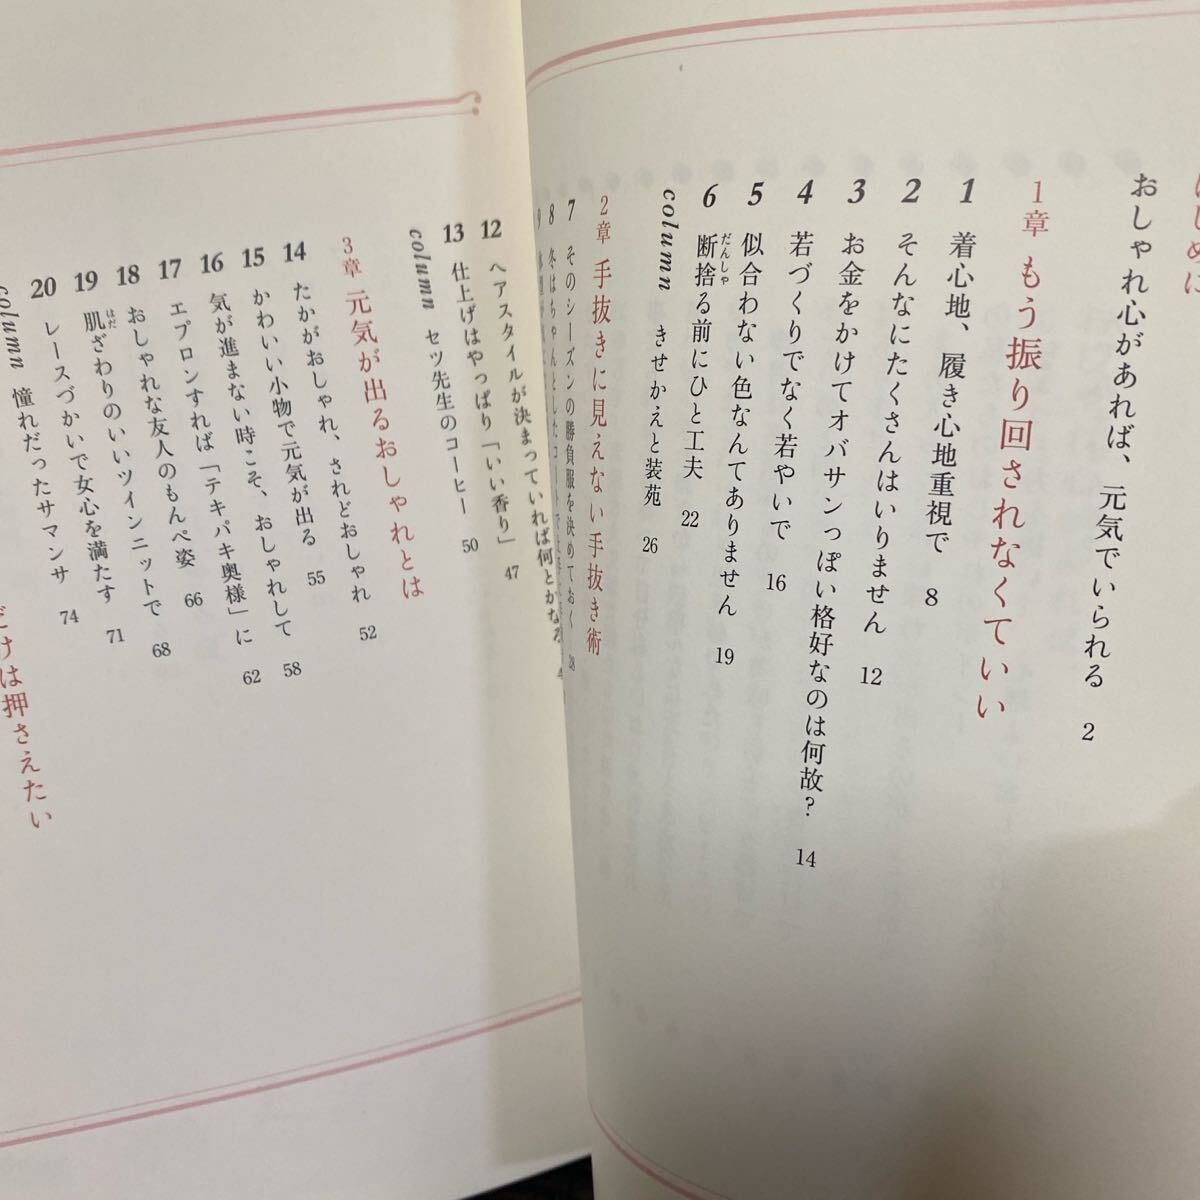 はじめに
おしゃれ心があれば、元気でいられる 2
1章 もう振り回されなくていい
1 着心地、履き心地重視で 8
2 そんなにたくさんはいりません 12
3 お金をかけてオバサンっぽい格好なのは何故? 14
4 若づくりでなく若やいで 16
5 似合わない色なんてありません 19
6 断捨る前にひと工夫 22
だんしゃ
column きせかえと装苑 26
2章 手抜きに見えない手抜き術
7 そのシーズンの勝負服を決めておく 38
8 冬はちゃんとしたコートで
9
12 ヘアスタイルが決まっていれば何とかなる
13 仕上げはやっぱり「いい香り」 47
column セツ先生のコーヒー 50
3章 元気が出るおしゃれとは
14 たかがおしゃれ、されどおしゃれ 52
15 かわいい小物で元気が出る 55
16 気が進まない時こそ、おしゃれして 58
17 エプロンすれば「テキパキ奥様」に 62
18 おしゃれな友人のもんぺ姿 66
19 肌ざわりのいいツインニットで 68
はだ
20 レースづかいで女心を満たす 71
column 憧れだったサマンサ 74
だけは押さえたい